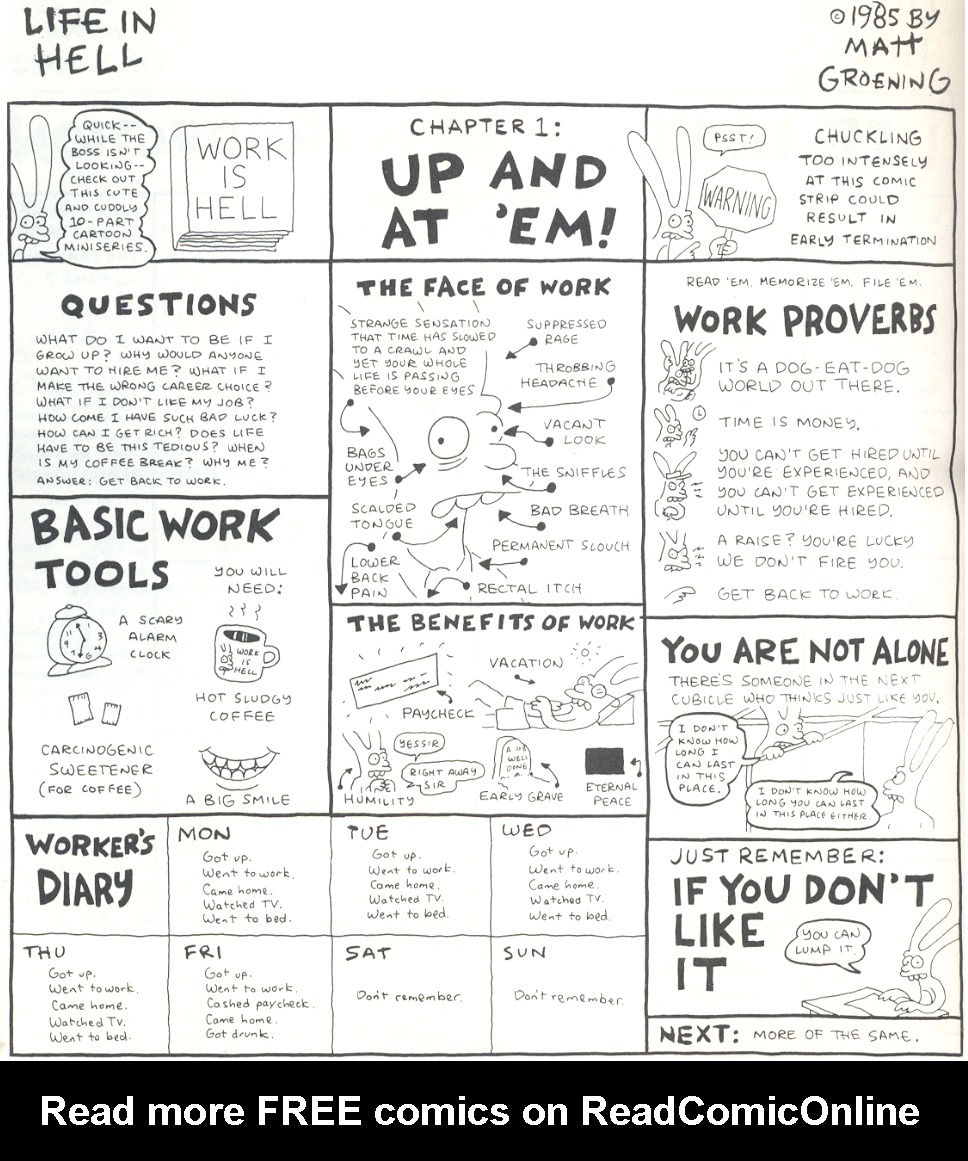 LIFE IN
HELL
©1985 BY
MATT
GROENING
QUICK--
WHILE THE
BOSS ISN'T
LOOKING--
CHECK OUT
THIS CUTE
AND CUDDLY
10-PART
CARTOON
MINISERIES.
WORK
IS
HELL
CHAPTER 1:
UP AND
AT 'EM!
PSST!
WARNING
CHUCKLING
TOO INTENSELY
AT THIS COMIC
STRIP COULD
RESULT IN
EARLY TERMINATION
QUESTIONS
WHAT DO I WANT TO BE IF I
GROW UP? WHY WOULD ANYONE
WANT TO HIRE ME? WHAT IF I
MAKE THE WRONG CAREER CHOICE?
WHAT IF I DON'T LIKE MY JOB?
HOW COME I HAVE SUCH BAD LUCK?
HOW CAN I GET RICH? DOES LIFE
HAVE TO BE THIS TEDIOUS? WHEN
IS MY COFFEE BREAK? WHY ME?
ANSWER: GET BACK TO WORK.
BASIC WORK
TOOLS
YOU WILL
NEED:
A SCARY
ALARM
CLOCK
WORK
IS
HELL
HOT SLUDGY
COFFEE
CARCINOGENIC
SWEETENER
(FOR COFFEE)
A BIG SMILE
THE FACE OF WORK
STRANGE SENSATION
THAT TIME HAS SLOWED
TO A CRAWL AND
YET YOUR WHOLE
LIFE IS PASSING
BEFORE YOUR EYES
SUPPRESSED
RAGE
THROBBING
HEADACHE
VACANT
LOOK
BAGS
UNDER
EYES
THE SNIFFLES
SCALDED
TONGUE
BAD BREATH
PERMANENT SLOUCH
LOWER
BACK
PAIN
RECTAL ITCH
THE BENEFITS OF WORK
PAYCHECK
VACATION
YESSIR
RIGHT AWAY
SIR
HUMILITY
A JOB
WELL
DONE
EARLY GRAVE
ETERNAL
PEACE
READ 'EM. MEMORIZE 'EM. FILE 'EM.
WORK PROVERBS
IT'S A DOG-EAT-DOG
WORLD OUT THERE.
TIME IS MONEY.
YOU CAN'T GET HIRED UNTIL
YOU'RE EXPERIENCED, AND
YOU CAN'T GET EXPERIENCED
UNTIL YOU'RE HIRED.
A RAISE? YOU'RE LUCKY
WE DON'T FIRE YOU.
GET BACK TO WORK.
YOU ARE NOT ALONE
THERE'S SOMEONE IN THE NEXT
CUBICLE WHO THINKS JUST LIKE YOU.
I DON'T
KNOW HOW
LONG I
CAN LAST
IN THIS
PLACE.
I DON'T KNOW HOW
LONG YOU CAN LAST
IN THIS PLACE EITHER.
WORKER'S
DIARY
MON
Got up.
Went to work.
Came home.
Watched TV.
Went to bed.
TUE
Got up.
Went to work.
Came home.
Watched TV.
Went to bed.
WED
Got up.
Went to work.
Came home.
Watched TV.
Went to bed.
THU
Got up.
Went to work.
Came home.
Watched TV.
Went to bed.
FRI
Got up.
Went to work.
Cashed paycheck.
Came home.
Got drunk.
SAT
Don't remember.
SUN
Don't remember.
JUST REMEMBER:
IF YOU DON'T
LIKE
IT
YOU CAN
LUMP IT.
NEXT: MORE OF THE SAME.
Read more FREE comics on ReadComicOnline